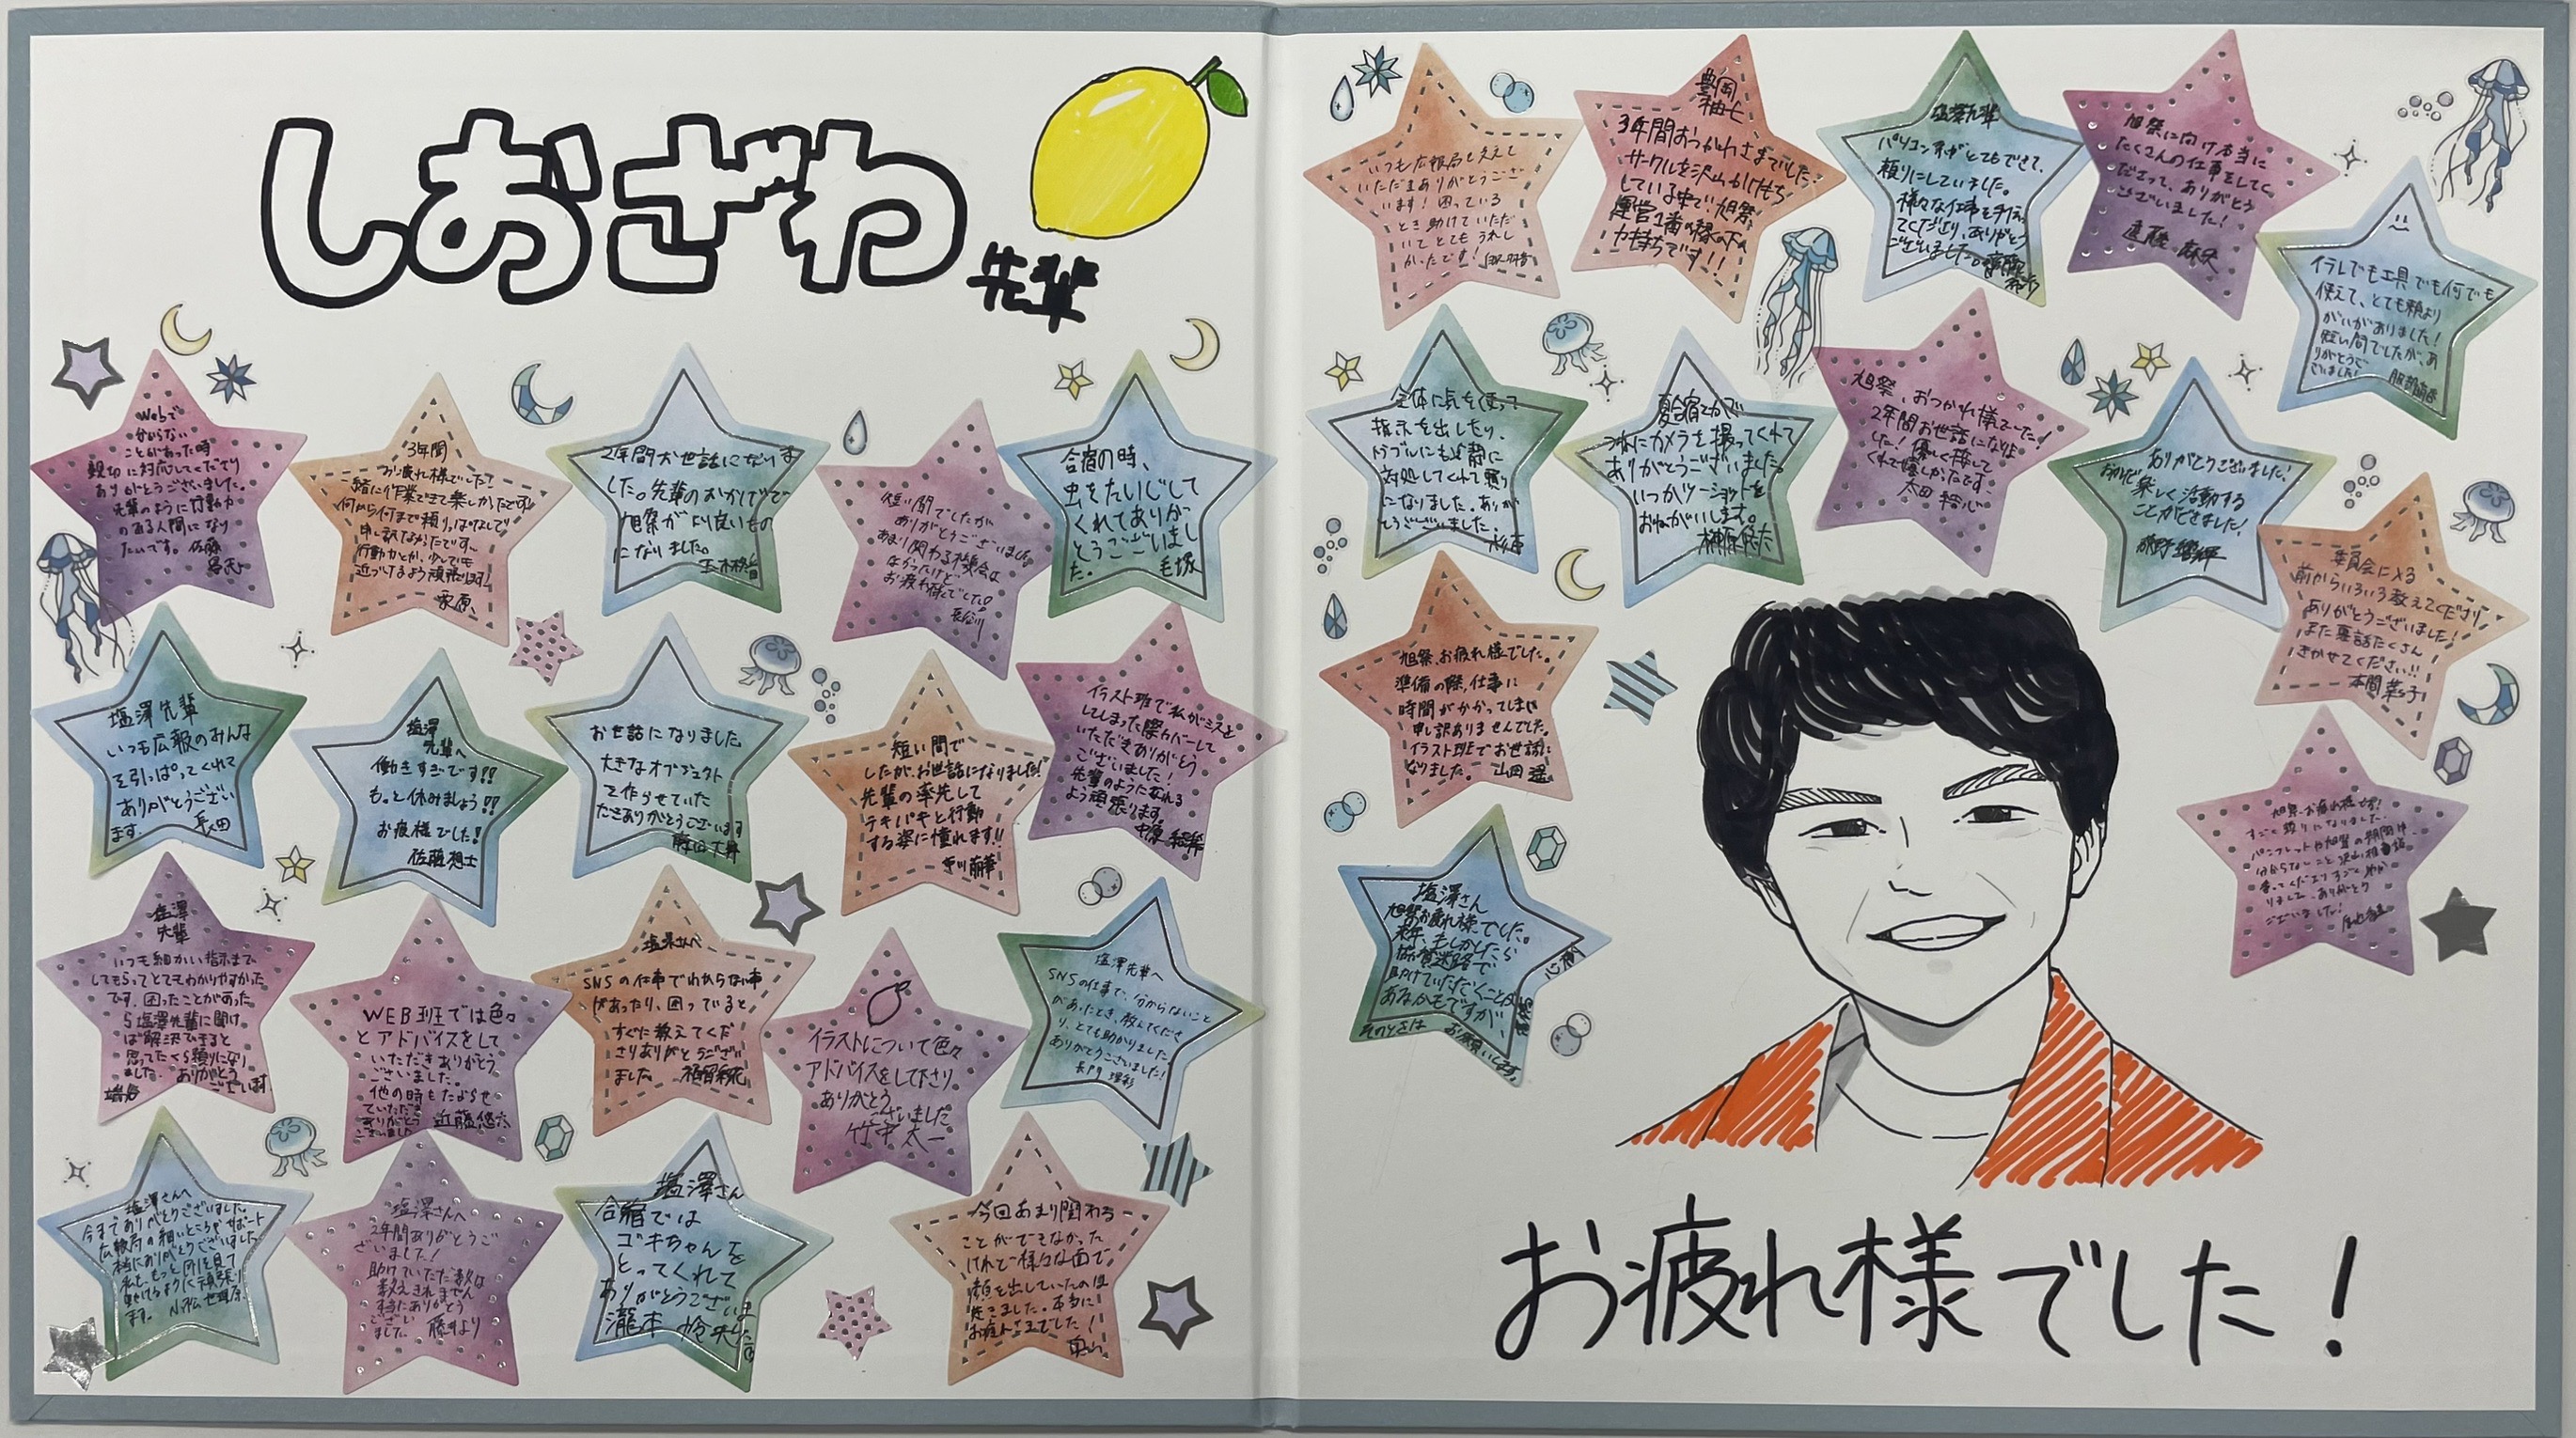 しおざわ
先輩
Webで
分からない
ことがあった時
親切に対応してくださり
ありがとうございました。
先輩のように行動力
のある人間になり
たいです。 佐藤
3年間
お疲れ様でした!
一緒に作業できて楽しかったです!
何から何まで頼りっぱなしで
申し訳なかったです。
行動力とか、少しでも
近づけるよう頑張ります!
栗原
2年間お世話になりま
した。先輩のおかげで
旭祭がより良いもの
になりました。
短い間でしたが
ありがとうございました。
あまり関わる機会は
なかったけど
お疲れ様でした。
長谷川
合宿の時、
虫をたいじして
くれてありが
とうございまし
た。 毛塚
塩澤先輩
いつも広報のみんな
を引っぱってくれて
ありがとうござい
ます。
塩澤
先輩へ
働きすぎです!!
もっと休みましょう!!
お疲様でした!
佐藤想士
お世話になりました
大きなオブジェクト
を作らせていた
だきありがとうございます
短い間で
したが、お世話になりました!
先輩の率先して
テキパキと行動
する姿に憧れます!!
イラスト班で私がミスを
してしまった際カバーして
いただきありがとう
ございました!
先輩のようになれる
よう頑張ります。
塩澤
先輩
いつも細かい指示まで
してもらってとてもわかりやすかった
です。困ったことがあった
ら塩澤先輩に聞け
ば解決できると
思ってたくさん頼りになり
ました。 ありがとう
ございます
WEB班では色々
とアドバイスをして
いただきありがとう
ございました。
他の時もたよらせ
ていただき
ありがとう 近藤悠六
ございました
塩澤さんへ
SNSの仕事でわからない事
があったり、困っていると
すぐに教えてくだ
さりありがとうござい
ました
イラストについて色々
アドバイスをして下さり
ありがとう
ございました
竹中太一
塩澤先輩へ
SNSの仕事で、分からないこと
があったとき、教えてくださ
り、とても助かりました。
ありがとうございました!
塩澤さんへ
今までありがとうございました。
広報局の細いところやサポート
本当にありがとうございました
塩澤さんへ
2年間ありがとうご
ざいました!
助けていただいた数は
数えきれません
本当にありがとう
ござい
ました 藤井より
塩澤さん
合宿では
ゴキちゃんを
とってくれて
ありがとうございました
今回あまり関わる
ことができなかった
けれど、様々な面で
顔を出していたのは
見てました。本当に
お疲れさまでした!
いつも広報局を支えて
いただきありがとうござい
ます! 困っている
とき助けていただ
いてとてもうれし
かったです!
豊岡
柚七
3年間おつかれさまでした!
サークルを沢山かけもち
している中で旭祭
運営1番の縁の下の
力持ちです!!
塩澤先輩
パソコン系がとてもできて、
頼りにしていました。
様々な仕事を手伝っ
てくださり、ありがとう
ございました。
旭祭に向け本当に
たくさんの仕事をしてく
ださって、ありがとう
ございました!
イラレでも工具でも何でも
使えて、とても頼より
がいがありました!
短い間でしたが、あ
りがとうご
ざいました! 服部
全体に気を使って
指示を出したり、
トラブルにも冷静に
対処してくれて頼り
になりました。ありが
とうございました。
杉本
夏合宿とかで
沢山カメラを撮ってくれて
ありがとうございました。
いつかツーショットを
おねがいします。
榊原悠六
旭祭、おつかれ様でした!
2年間お世話になりま
した! 優しく接して
くれて嬉しかったです。
太田
ありがとうございました!
おかげで楽しく活動する
ことができました!
委員会に入る
前からいろいろ教えてくださり
ありがとうございました!
また裏話たくさん
きかせてください!!
本間菜々子
旭祭、お疲れ様でした。
準備の際、仕事に
時間がかかってしまい
申し訳ありませんでした。
イラスト班でお世話に
なりました。 山田遥
旭祭お疲れ様です!
すごく頼りになりました。
塩澤さん
旭祭お疲れ様でした。
来年、もしかしたら
協賛迷路で
助けていただくことが
あるかもですが、
そのときは お願いします。
お疲れ様でした!